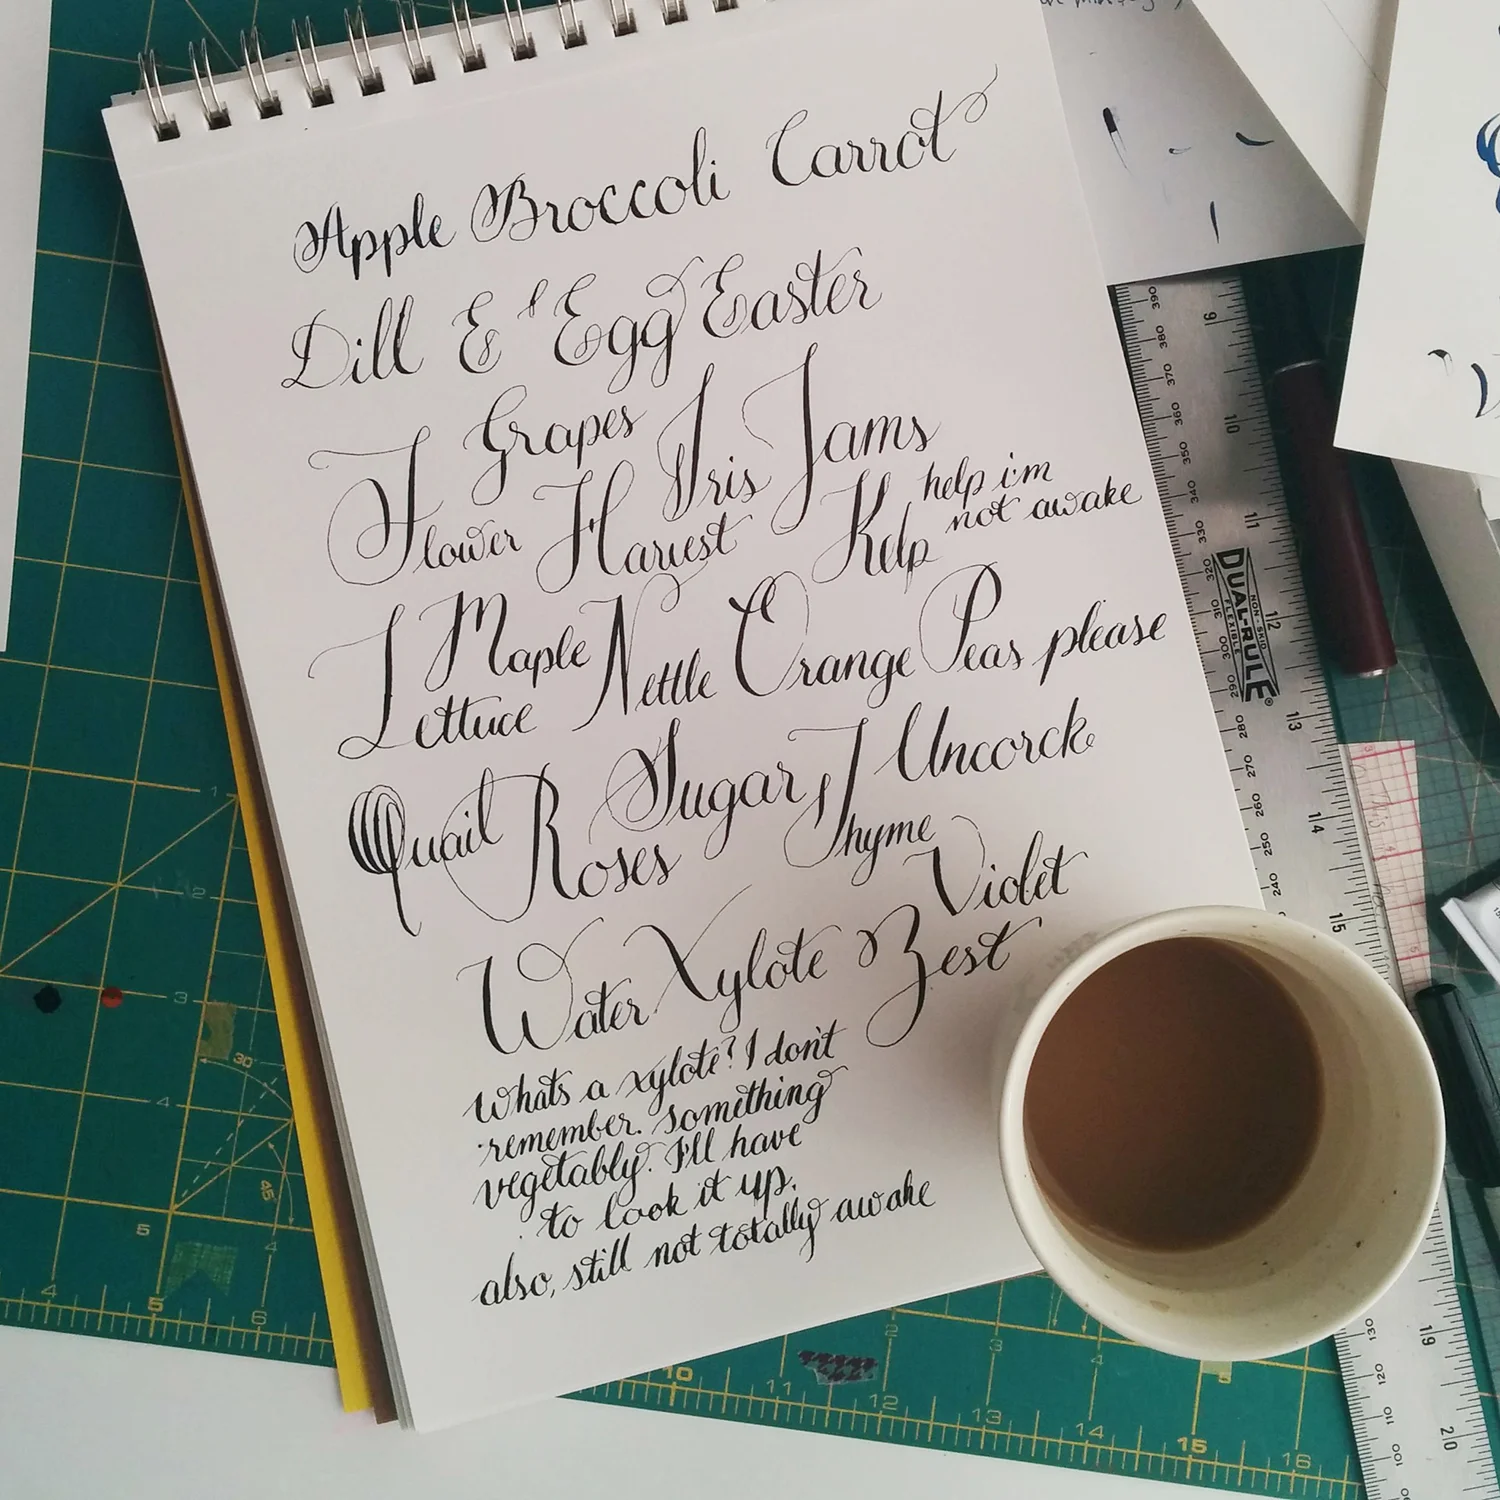 Apple Broccoli Carrot
Dill E E Egg Easter
Grapes Iris Jams
Flower Harvest Kelp help i'm
not awake
Maple Nettle Orange Peas please
Lettuce
Quail Roses Sugar, Thyme Uncorck
Violet
Water Xylote Zest
whats a xylote? I don't
remember. something
vegetably. I'll have
to look it up.
also, still not totally awake
DUAL-RULE®
NON-SKID
FLEXIBLE
390
380
370
360
350
340
330
320
310
300
290
280
270
260
250
240
130
120
110
100
9
10
11
12
13
14
15
19
20
1
2
3
4
5
30°
45
4
5
6
10
11
12
13
15
16
2
3
4
5